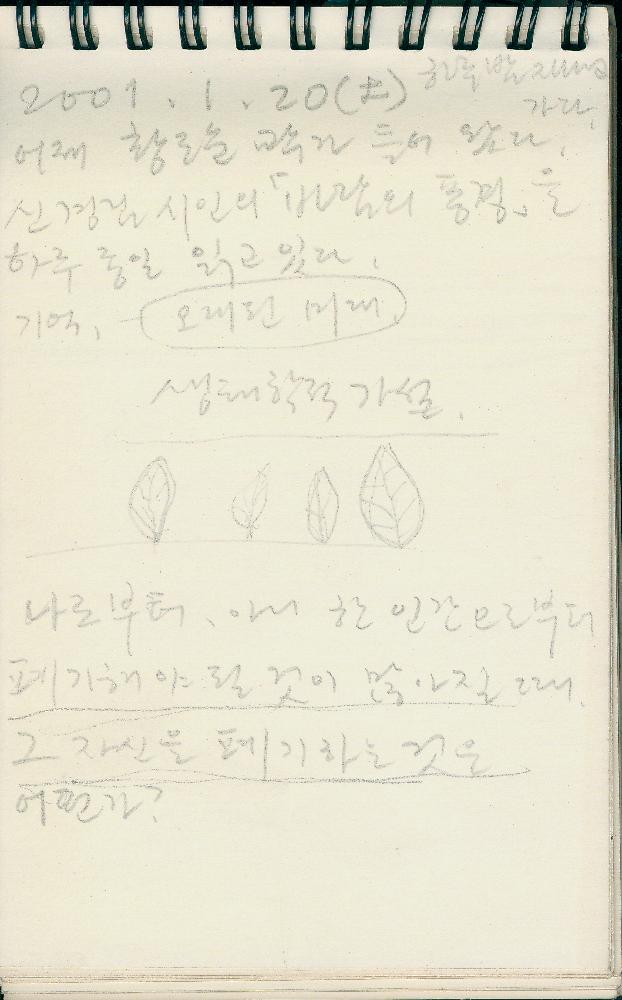 2001. 1. 20(土)
가다.
어제 황로슬 과수가 들어 왔다.
신경림 시인의 「바람의 풍경」을
하루 종일 읽고 있다.
기억, - 오래된 미래.
생태학적 가설.
나로부터, 아니 한 인간으로부터
폐기해야 될 것이 많아질 때.
그 자신을 폐기하는 것은
어떤가?